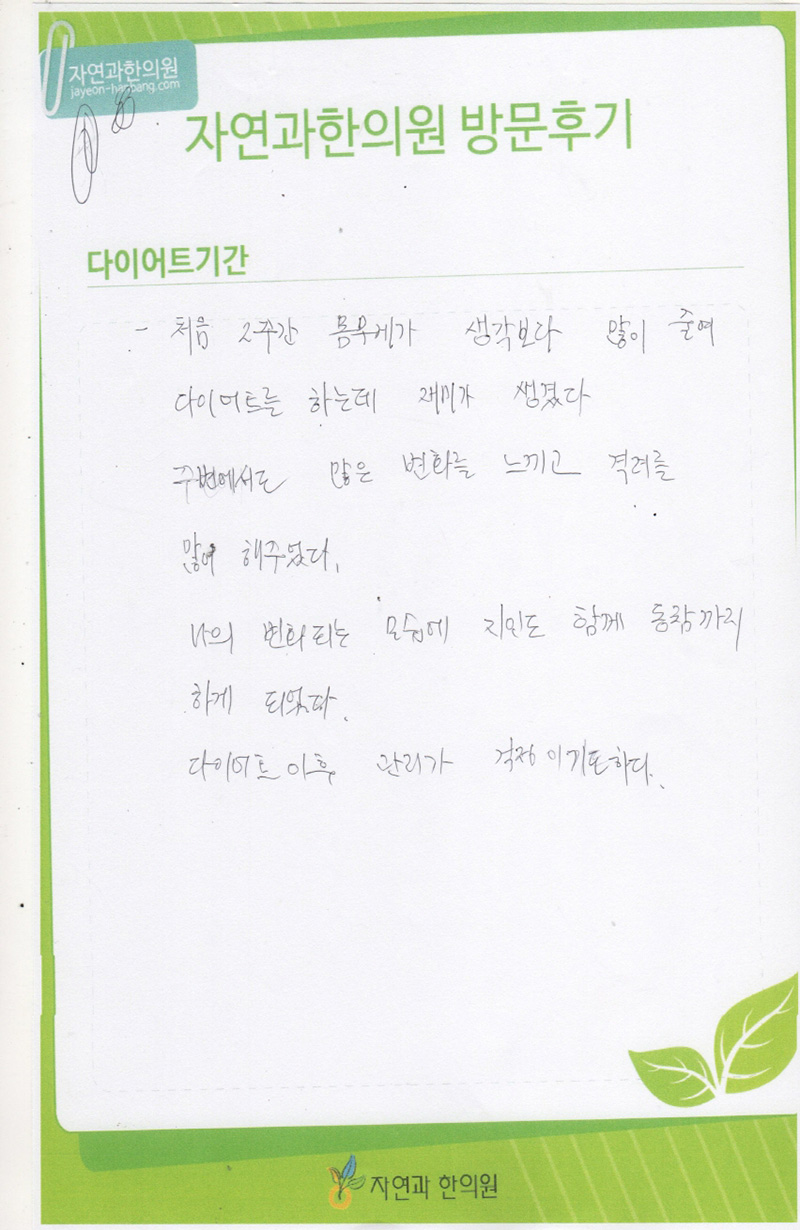 자연과한의원
jayeon-hanbang.com
자연과한의원 방문후기
다이어트기간
- 처음 2주간 몸무게가 생각보다 많이 줄여
다이어트를 하는데 재미가 생겼다
주변에서도 많은 변화를 느끼고 격려를
많이 해주었다.
나의 변화되는 모습에 지인도 함께 동참까지
하게 되었다.
다이어트 이후 관리가 걱정이기도하다.
자연과 한의원